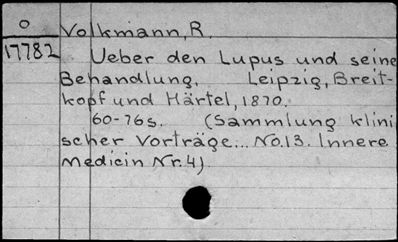 O
Volkmann, R.
17782
Ueber den Lupus und seine
Behandlung. Leipzig, Breit-
kopf und Härtel, 1870.
60-76s. (Sammlung klini
scher Vorträge... No.13. Innere
Medicin Nr.4)